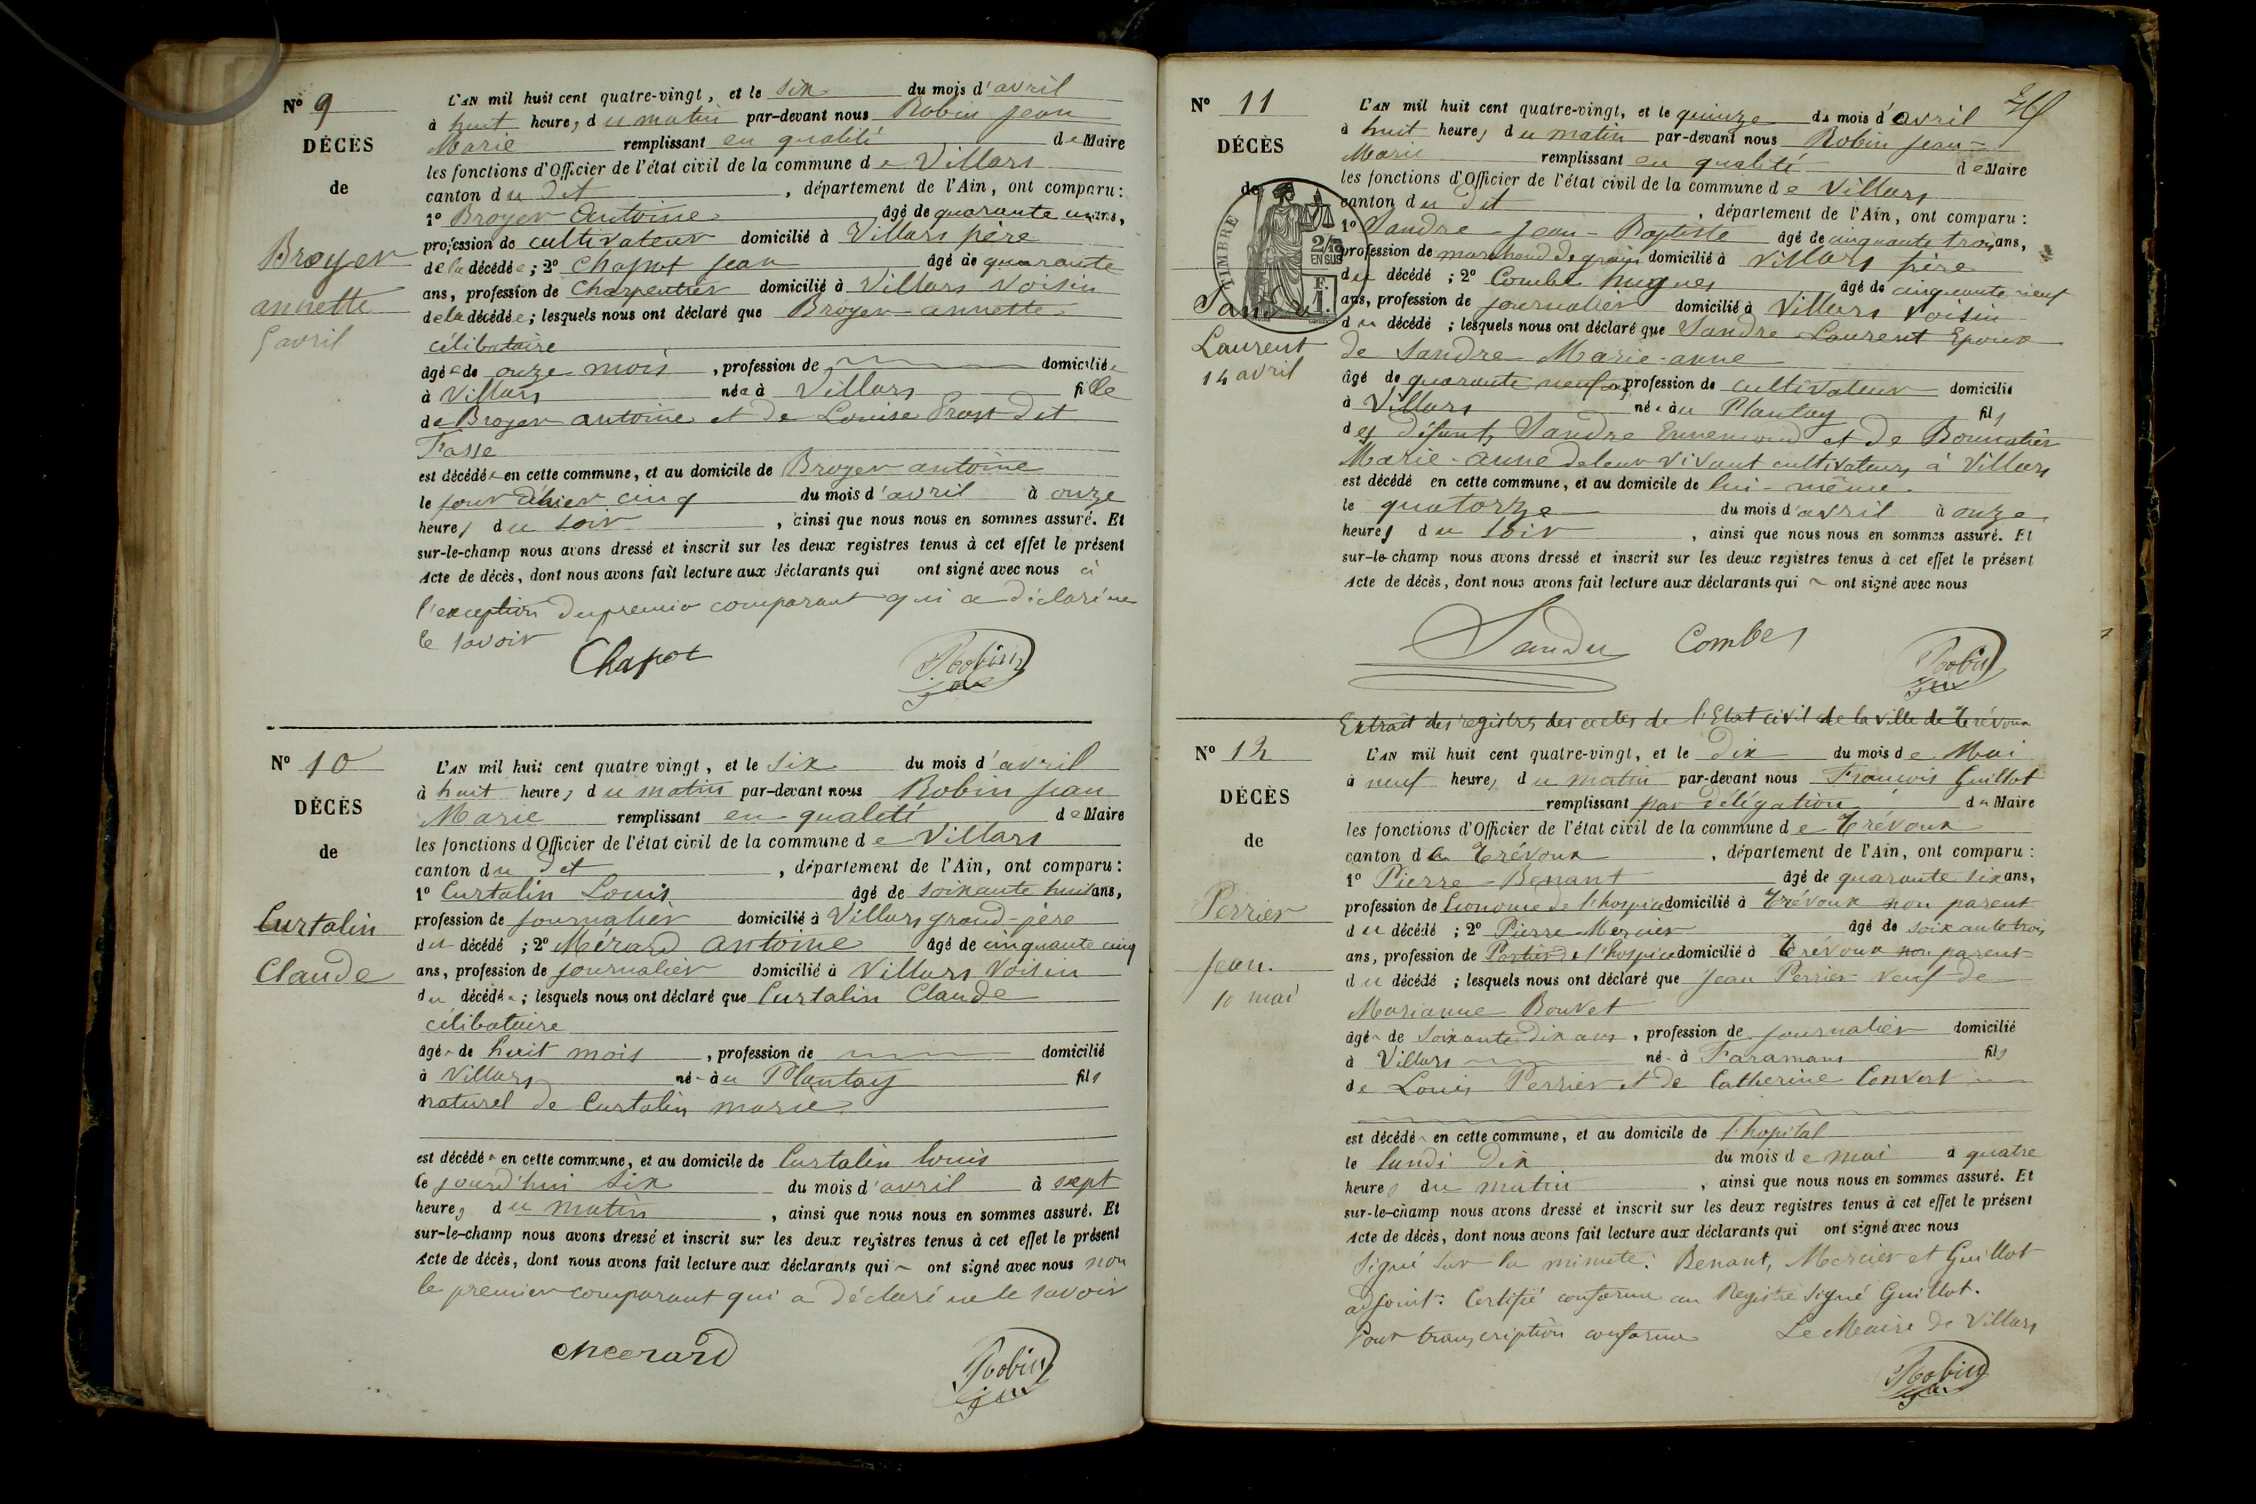 N° 9
DÉCÈS
de
Broyer
annette
5 avril
L'AN mil huit cent quatre-vingt, et le six du mois d'avril
à huit heures du matin par-devant nous Robin Jean
Marie remplissant en qualité de Maire
les fonctions d'Officier de l'état civil de la commune de Villars
canton du dit, département de l'Ain, ont comparu:
1° Broyer Antoine âgé de quarante un ans,
profession de cultivateur domicilié à Villars père
de la décédée; 2° Chapot Jean âgé de quarante
ans, profession de Charpentier domicilié à Villars voisin
de la décédée; lesquels nous ont déclaré que Broyer annette
célibataire
âgée de onze mois, profession de domiciliée
à Villars née à Villars fille
de Broyer antoine et de Louise Prost dit
Fasse
est décédée en cette commune, et au domicile de Broyer antoine
le jour d'hier cinq du mois d'avril à onze
heures du soir, ainsi que nous nous en sommes assuré. Et
sur-le-champ nous avons dressé et inscrit sur les deux registres tenus à cet effet le présent
Acte de décès, dont nous avons fait lecture aux déclarants qui ont signé avec nous à
l'exception du premier comparant qui a déclaré ne
le savoir
Chapot Robin
N° 10
DÉCÈS
de
Curtalin
Claude
L'AN mil huit cent quatre vingt, et le six du mois d'avril
à huit heures du matin par-devant nous Robin Jean
Marie remplissant en qualité de Maire
les fonctions d'Officier de l'état civil de la commune de Villars
canton du dit, département de l'Ain, ont comparu:
1° Curtalin Louis âgé de soixante huit ans,
profession de journalier domicilié à Villars grand-père
du décédé; 2° Mérard antoine âgé de cinquante cinq
ans, profession de journalier domicilié à Villars Voisin
du décédé; lesquels nous ont déclaré que Curtalin Claude
célibataire
âgé de huit mois, profession de domicilié
à Villars né au Plantay fils
naturel de Curtalin marie
est décédé en cette commune, et au domicile de Curtalin Louis
le jourd'hui six du mois d'avril à sept
heures du matin, ainsi que nous nous en sommes assuré. Et
sur-le-champ nous avons dressé et inscrit sur les deux registres tenus à cet effet le présent
Acte de décès, dont nous avons fait lecture aux déclarants qui ont signé avec nous non
le premier comparant qui a déclaré ne le savoir
Merard Robin
N° 11
DÉCÈS
de
TIMBRE
2/10
EN SUS
F.
1.
Laurent
14 avril
L'AN mil huit cent quatre-vingt, et le quinze du mois d'avril
à huit heures du matin par-devant nous Robin Jean-
Marie remplissant en qualité de Maire
les fonctions d'Officier de l'état civil de la commune de Villars
canton du dit, département de l'Ain, ont comparu:
1° Sandre Jean-Baptiste âgé de cinquante trois ans,
profession de marchand de grains domicilié à Villars frère
du décédé; 2° Combe hugues âgé de cinquante neuf
ans, profession de journalier domicilié à Villars Voisin
du décédé; lesquels nous ont déclaré que Sandre Laurent Epoux
de Sandre Marie-anne
âgé de quarante neuf ans profession de cultivateur domicilié
à Villars né au Plantay fils
des défunts Sandre Ennemond et de
Marie-anne de leur vivant cultivateurs à Villars
est décédé en cette commune, et au domicile de lui-même
le quatorze du mois d'avril à onze
heures du soir, ainsi que nous nous en sommes assuré. Et
sur-le-champ nous avons dressé et inscrit sur les deux registres tenus à cet effet le présent
Acte de décès, dont nous avons fait lecture aux déclarants qui ont signé avec nous
Sandre Combes Robin
Extrait des registres des actes de l'Etat civil de la ville de Trévoux
N° 12
DÉCÈS
de
Perrier
Jean.
10 mai
L'AN mil huit cent quatre-vingt, et le Dix du mois de Mai
à neuf heures du matin par-devant nous François Guillot
remplissant par délégation du Maire
les fonctions d'Officier de l'état civil de la commune de Trévoux
canton de Trévoux, département de l'Ain, ont comparu:
1° Pierre Benant âgé de quarante six ans,
profession de Econome de l'hospice domicilié à Trévoux non parent
du décédé; 2° Pierre Mercier âgé de soixante trois
ans, profession de Portier de l'hospice domicilié à Trévoux non parent
du décédé; lesquels nous ont déclaré que Jean Perrier veuf de
Marianne Bouvet
âgé de Soixante Dix ans, profession de journalier domicilié
à Villars né à Faramans fils
de Louis Perrier et de Catherine Convert
est décédé en cette commune, et au domicile de l'hopital
le lundi Dix du mois de mai à quatre
heures du matin, ainsi que nous nous en sommes assuré. Et
sur-le-champ nous avons dressé et inscrit sur les deux registres tenus à cet effet le présent
Acte de décès, dont nous avons fait lecture aux déclarants qui ont signé avec nous
Signé sur la minute: Benant, Mercier et Guillot
adjoint: Certifié conforme au Registre Signé Guillot.
Pour transcription conforme Le Maire de Villars
Robin